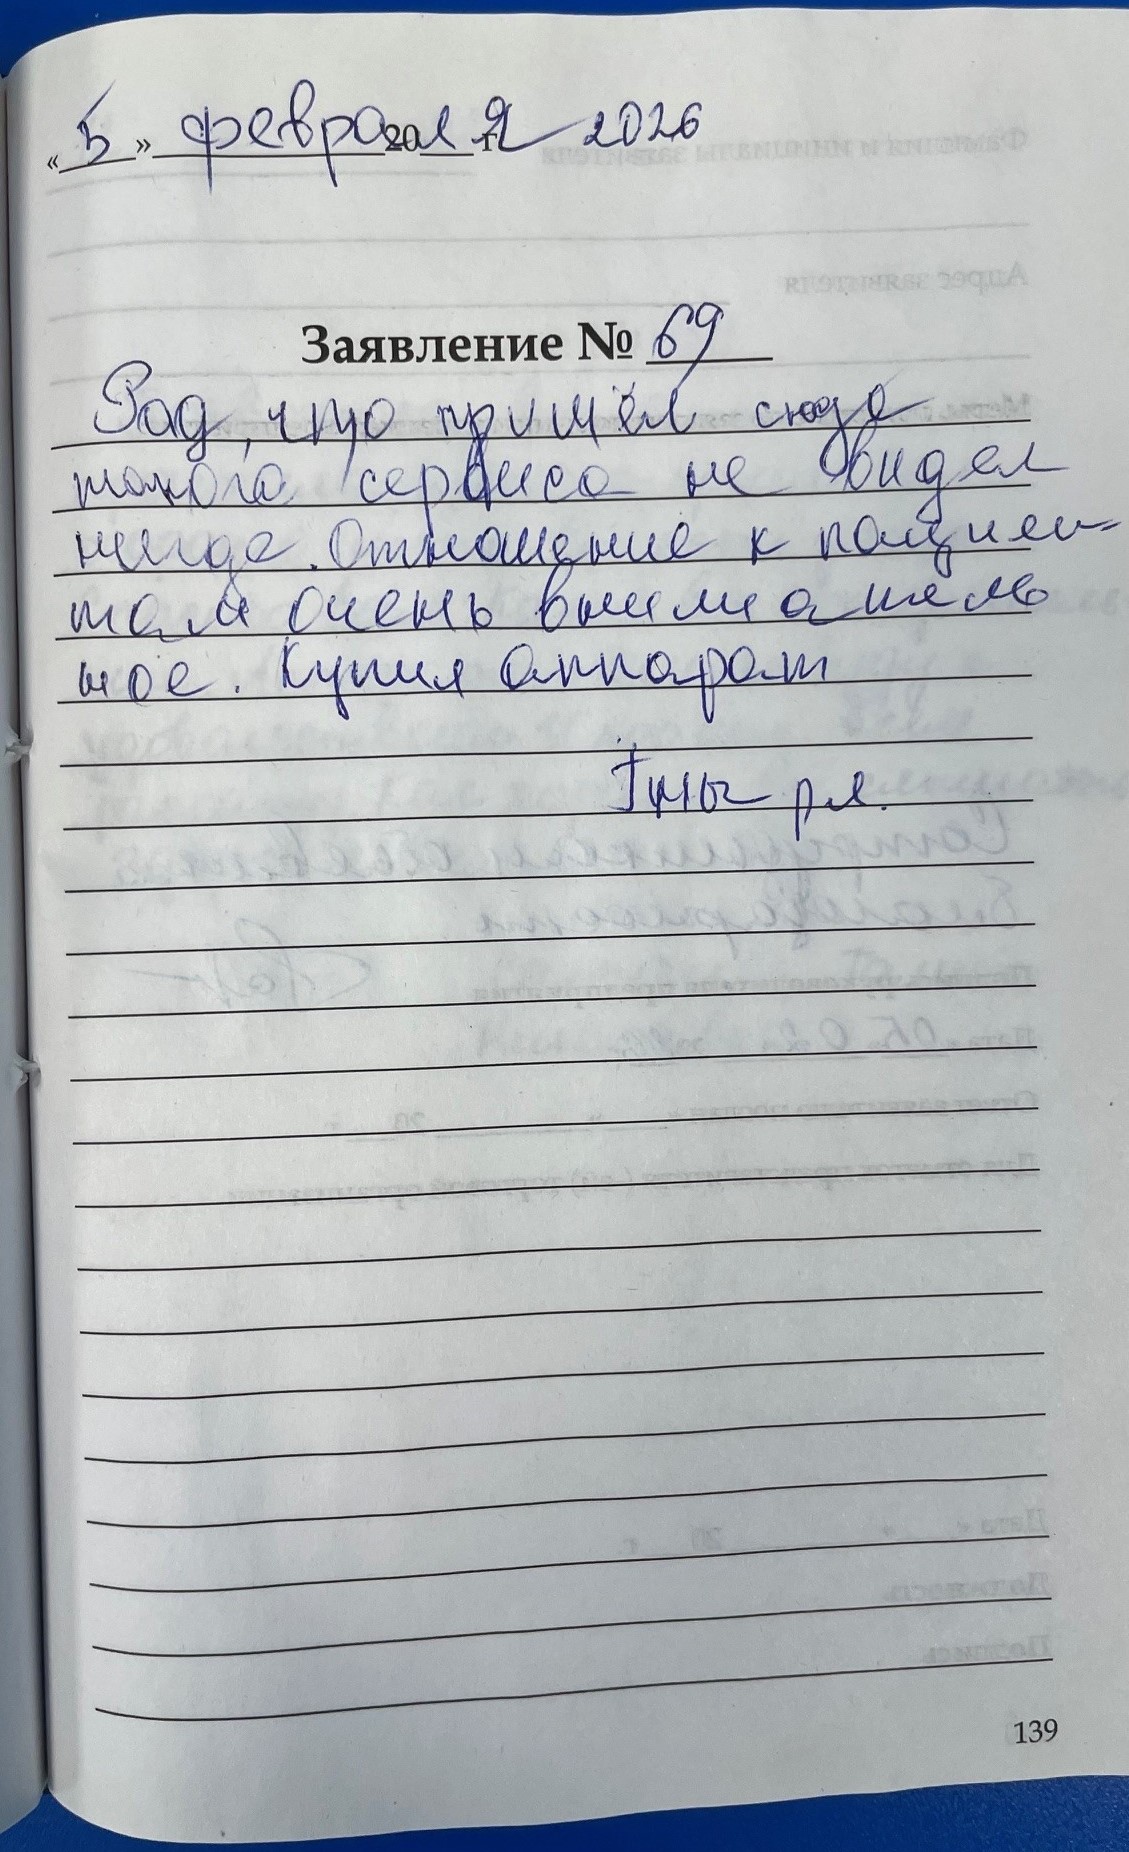 «5» февраля 20 г. 2026
Заявление № 69
Рад, что пришёл сюда
такого сервиса не видел
нигде. Отношение к пациен-
там очень вниматель
ное. Купил аппарат
139